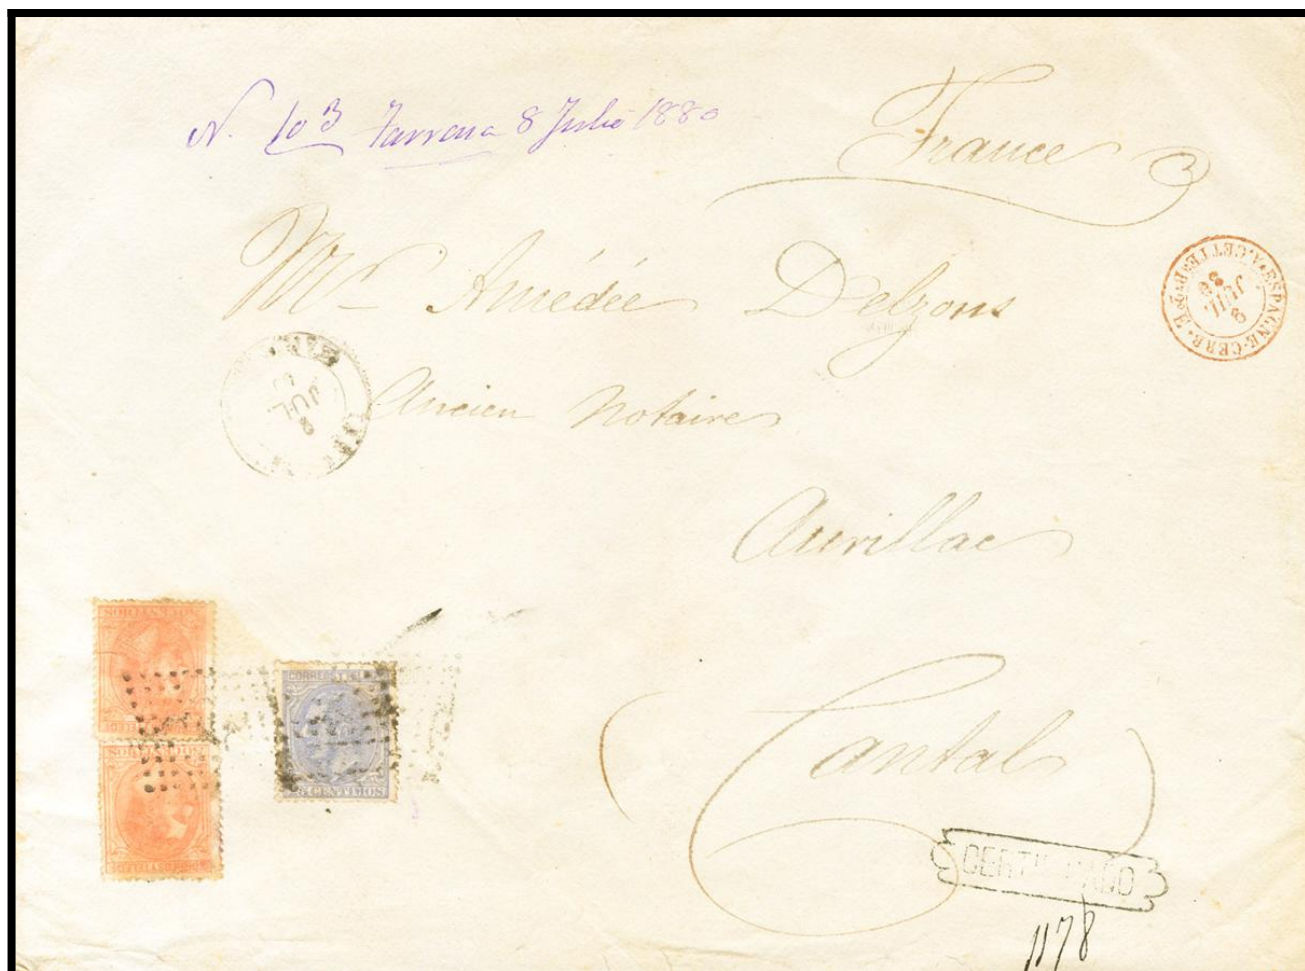 N. 103 Tarrasa 8 Julio 1880
France
Mr Amédée Delzons
Ancien Notaire
Aurillac
Cantal
ESPAGNE-CERB.
9
JUIL
80
8
JUL
CORREOS Y
CENTIMOS
CERTIFICADO
1178